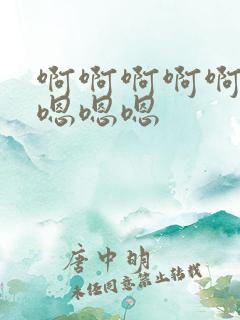 啊啊啊啊啊
嗯嗯嗯
唐中明
未经同意禁止转载